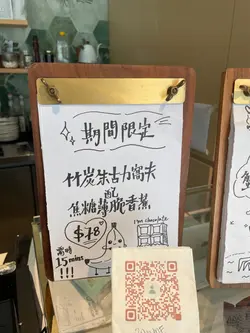 期間限定
竹炭朱古力窩夫
配
焦糖薄脆香蕉
$78
I'm chocolate
需時
15mins
!!!